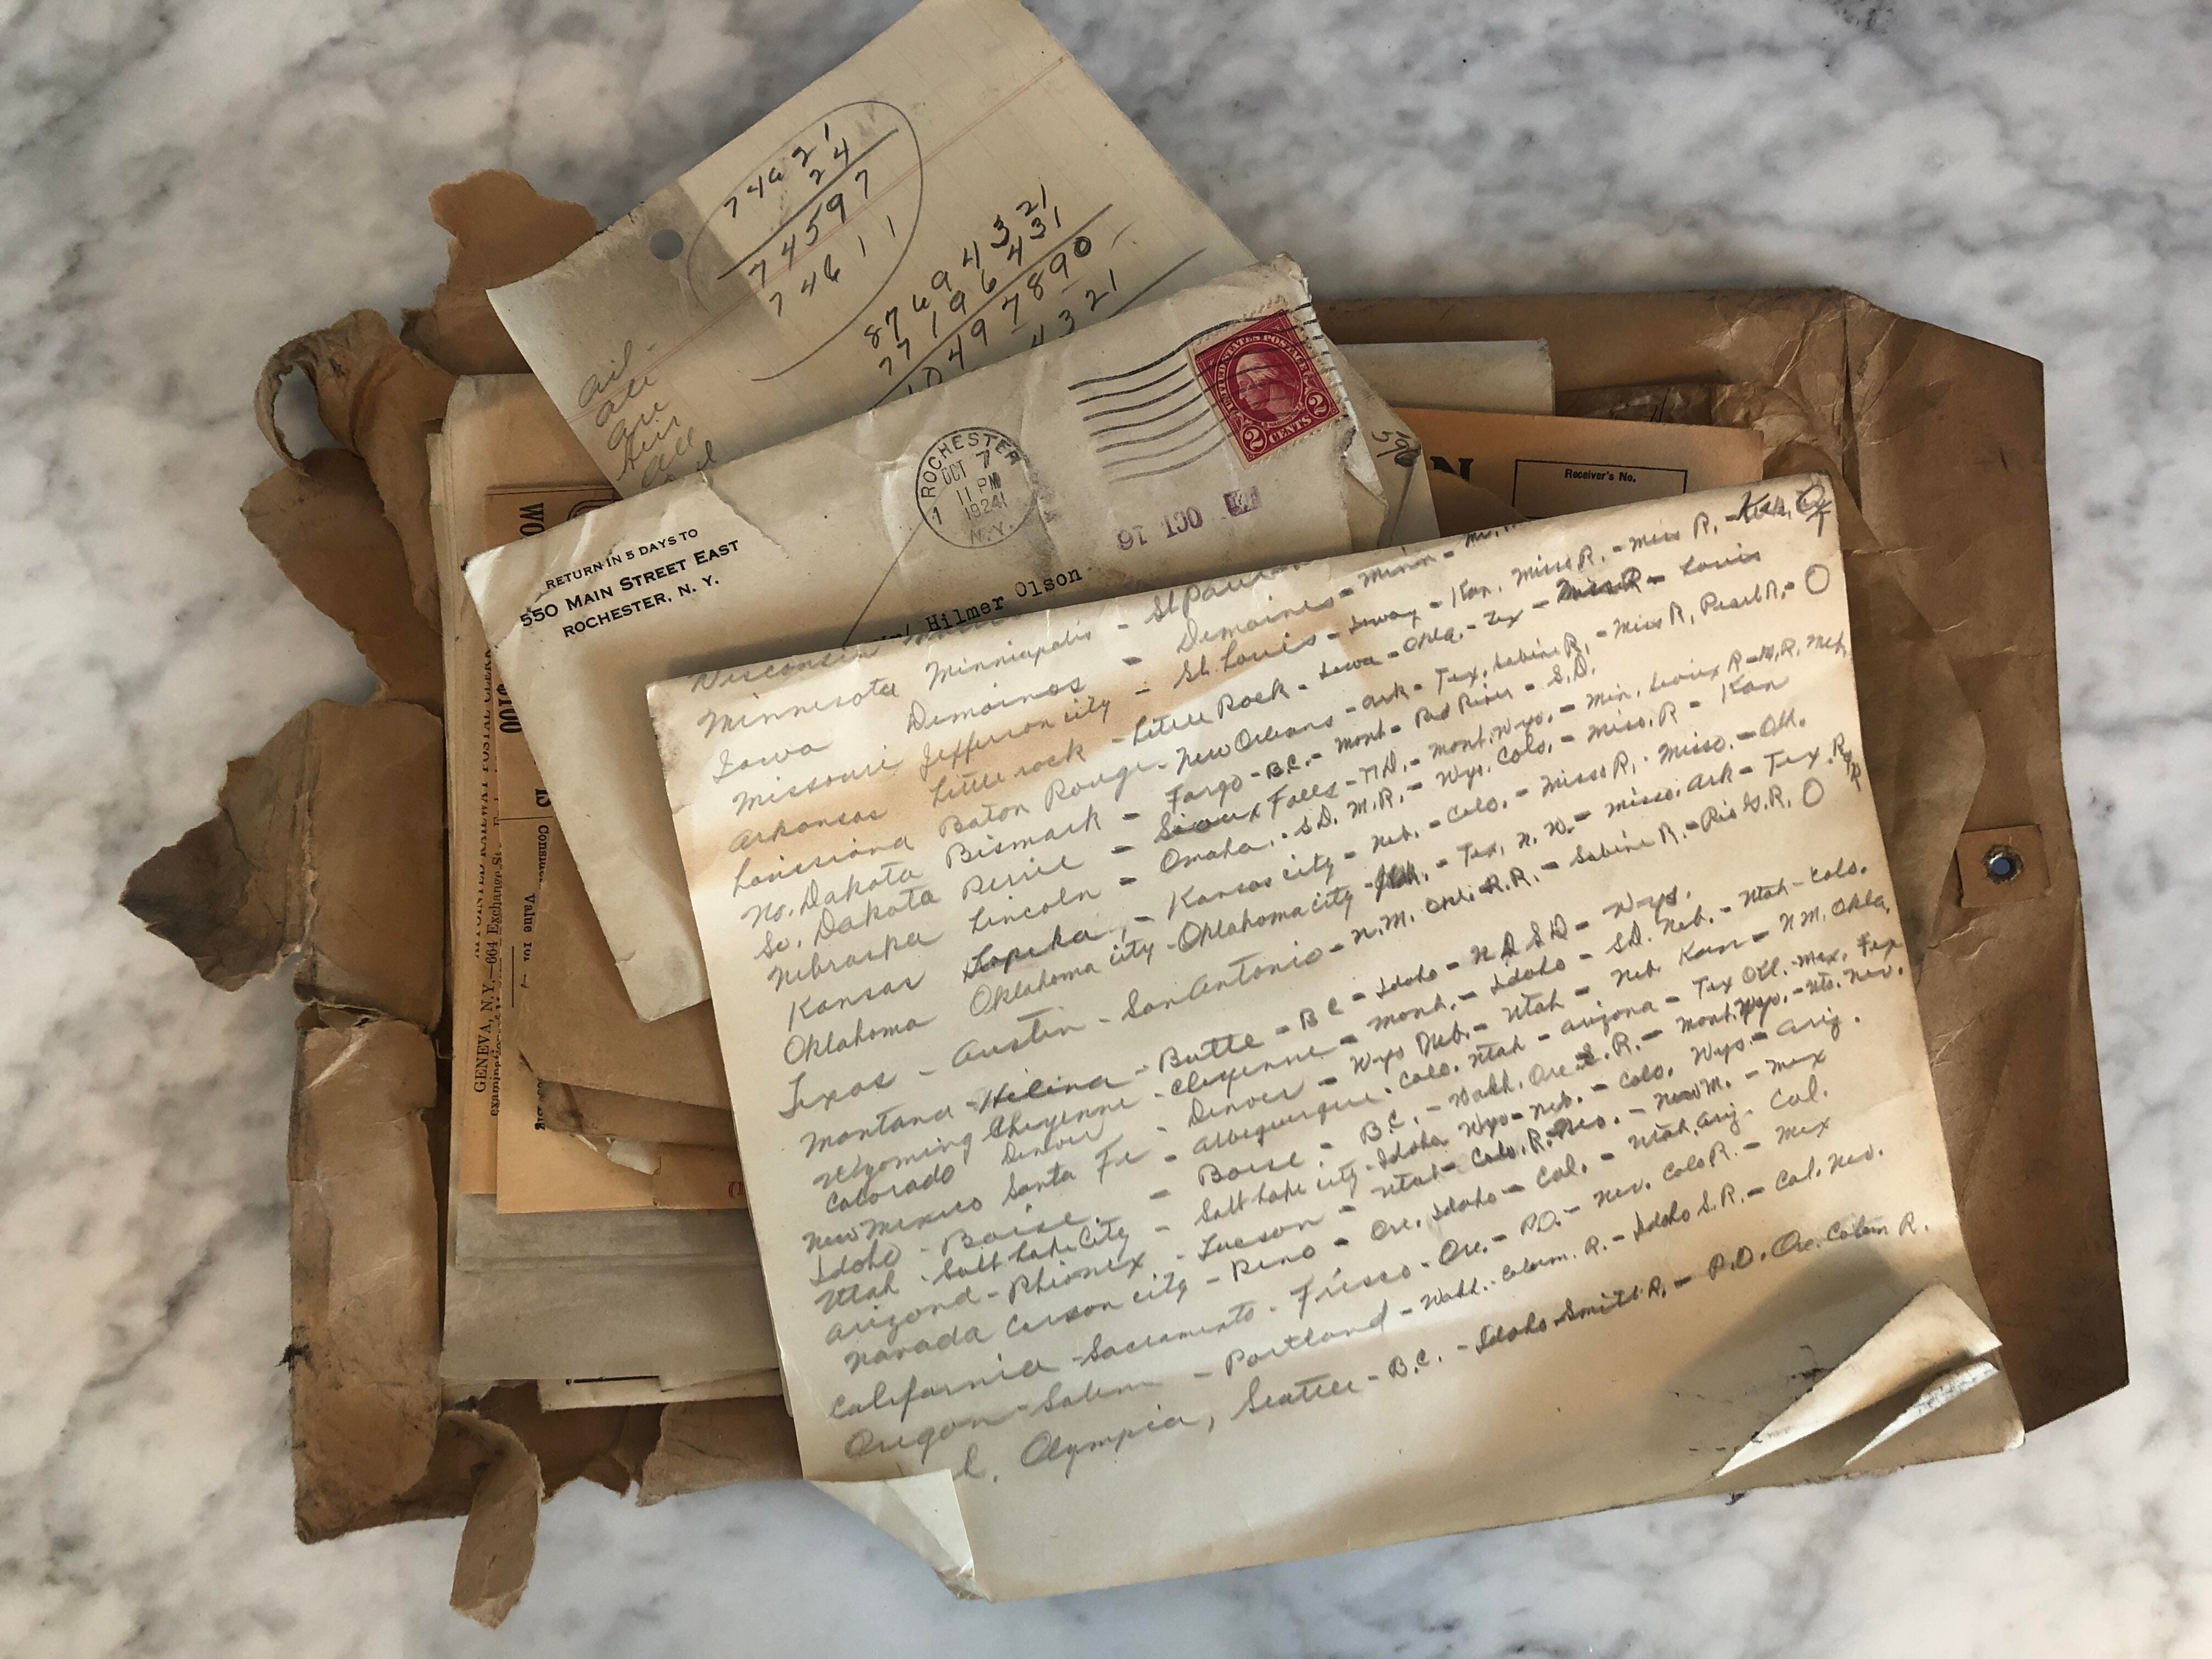 746 21
24
74597
74611
8769 4321
7719 6431
10497890
4321
ail
all
are
Air
all
RETURN IN 5 DAYS TO
550 MAIN STREET EAST
ROCHESTER, N. Y.
ROCHESTER
OCT 7
11 PM
1924
N.Y.
1
UNITED STATES POSTAGE
2 CENTS 2
OCT 16
Hilmer Olson
Receiver's No.
N
WO
$100
APPOINTED RAILWAY POSTAL CLERK
GENEVA, N.Y.—664 Exchange St.
Consumer
Value for
15
Wisconsin
Minnesota Minniapolis - St Paul
Iowa Demoines - Demoines - Minn -
Missouri Jefferson city - St. Louis - Iowa - Kan. Miss R. - Miss R. -
Arkansas Little rock - Little Rock - Iowa - Okla. - Tex - Miss R - Louis
Louisiana Baton Rouge - New Orleans - Ark - Tex, Sabine R, - Miss R, Pearl R, - O
No. Dakota Bismark - Fargo - B.C. - Mont - Red River - S.D.
So. Dakota Perrie - Sioux Falls - N.D. - Mont. Wyo. - Min. Sioux R - M.R. Neb.
Nebraspa Lincoln - Omaha. - S.D. M.R. - Wyo. Colo. - Miso. R - Kan
Kansas Topeka, - Kansas city - Neb. - Colo. - Misso R, - Misso. - Okl.
Oklahoma Oklahoma city - Oklahoma city - - Tex, N. M. - Misso. Ark - Tex. R
Texas - Austin - San Antonio - N.M. Okl. R.R. - Sabine R. - Rio G.R. O
Montana - Hilina - Butte - B C - Idaho - N D S D - Wyo.
Wyoming Cheyenne - Cheyenne - Mont. - Idaho - S.D. Neb. - Utah - Colo.
Colorado Denver - Denver - Wyo Neb. - Utah - Neb. Kan - N M. Okla.
New Mexico Santa Fe - Albequerque - Colo. Utah - Arizona - Tex Okl. - Mex. Tex
Idaho - Boise. - Boise - B.C. - Wash. Ore S.R. - Mont. Wyo. - Ut. Nev.
Utah - Salt Lake City - Salt Lake city - Idaho Wyo - Neb. - Colo. Wyo. - Ariz.
Arizona - Phionix - Tucson - Utah - Colo. R. Nev. - New M. - Mex
Navada Carson city - Reno - Ore. Idaho - Cal. - Utah, Ariz. Cal.
California - Sacramento - Frisco - Ore. - P.O. - Nev. Colo R. - Mex
Oregon - Salem - Portland - Wash. - Colum. R. - Idaho S.R. - Cal. Nev.
Olympia, Seattle - B.C. - Idaho - P.O. Ore. Colum R.